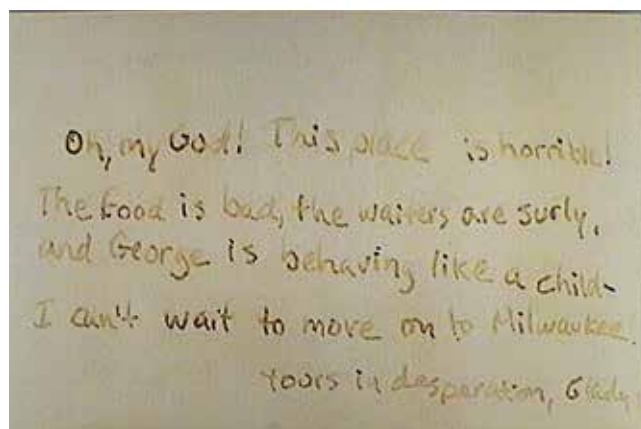 Oh, my God! This place is horrible!
The food is bad, the waiters are surly,
and George is behaving like a child-
I can't wait to move on to Milwaukee!
Yours in desperation, Glady